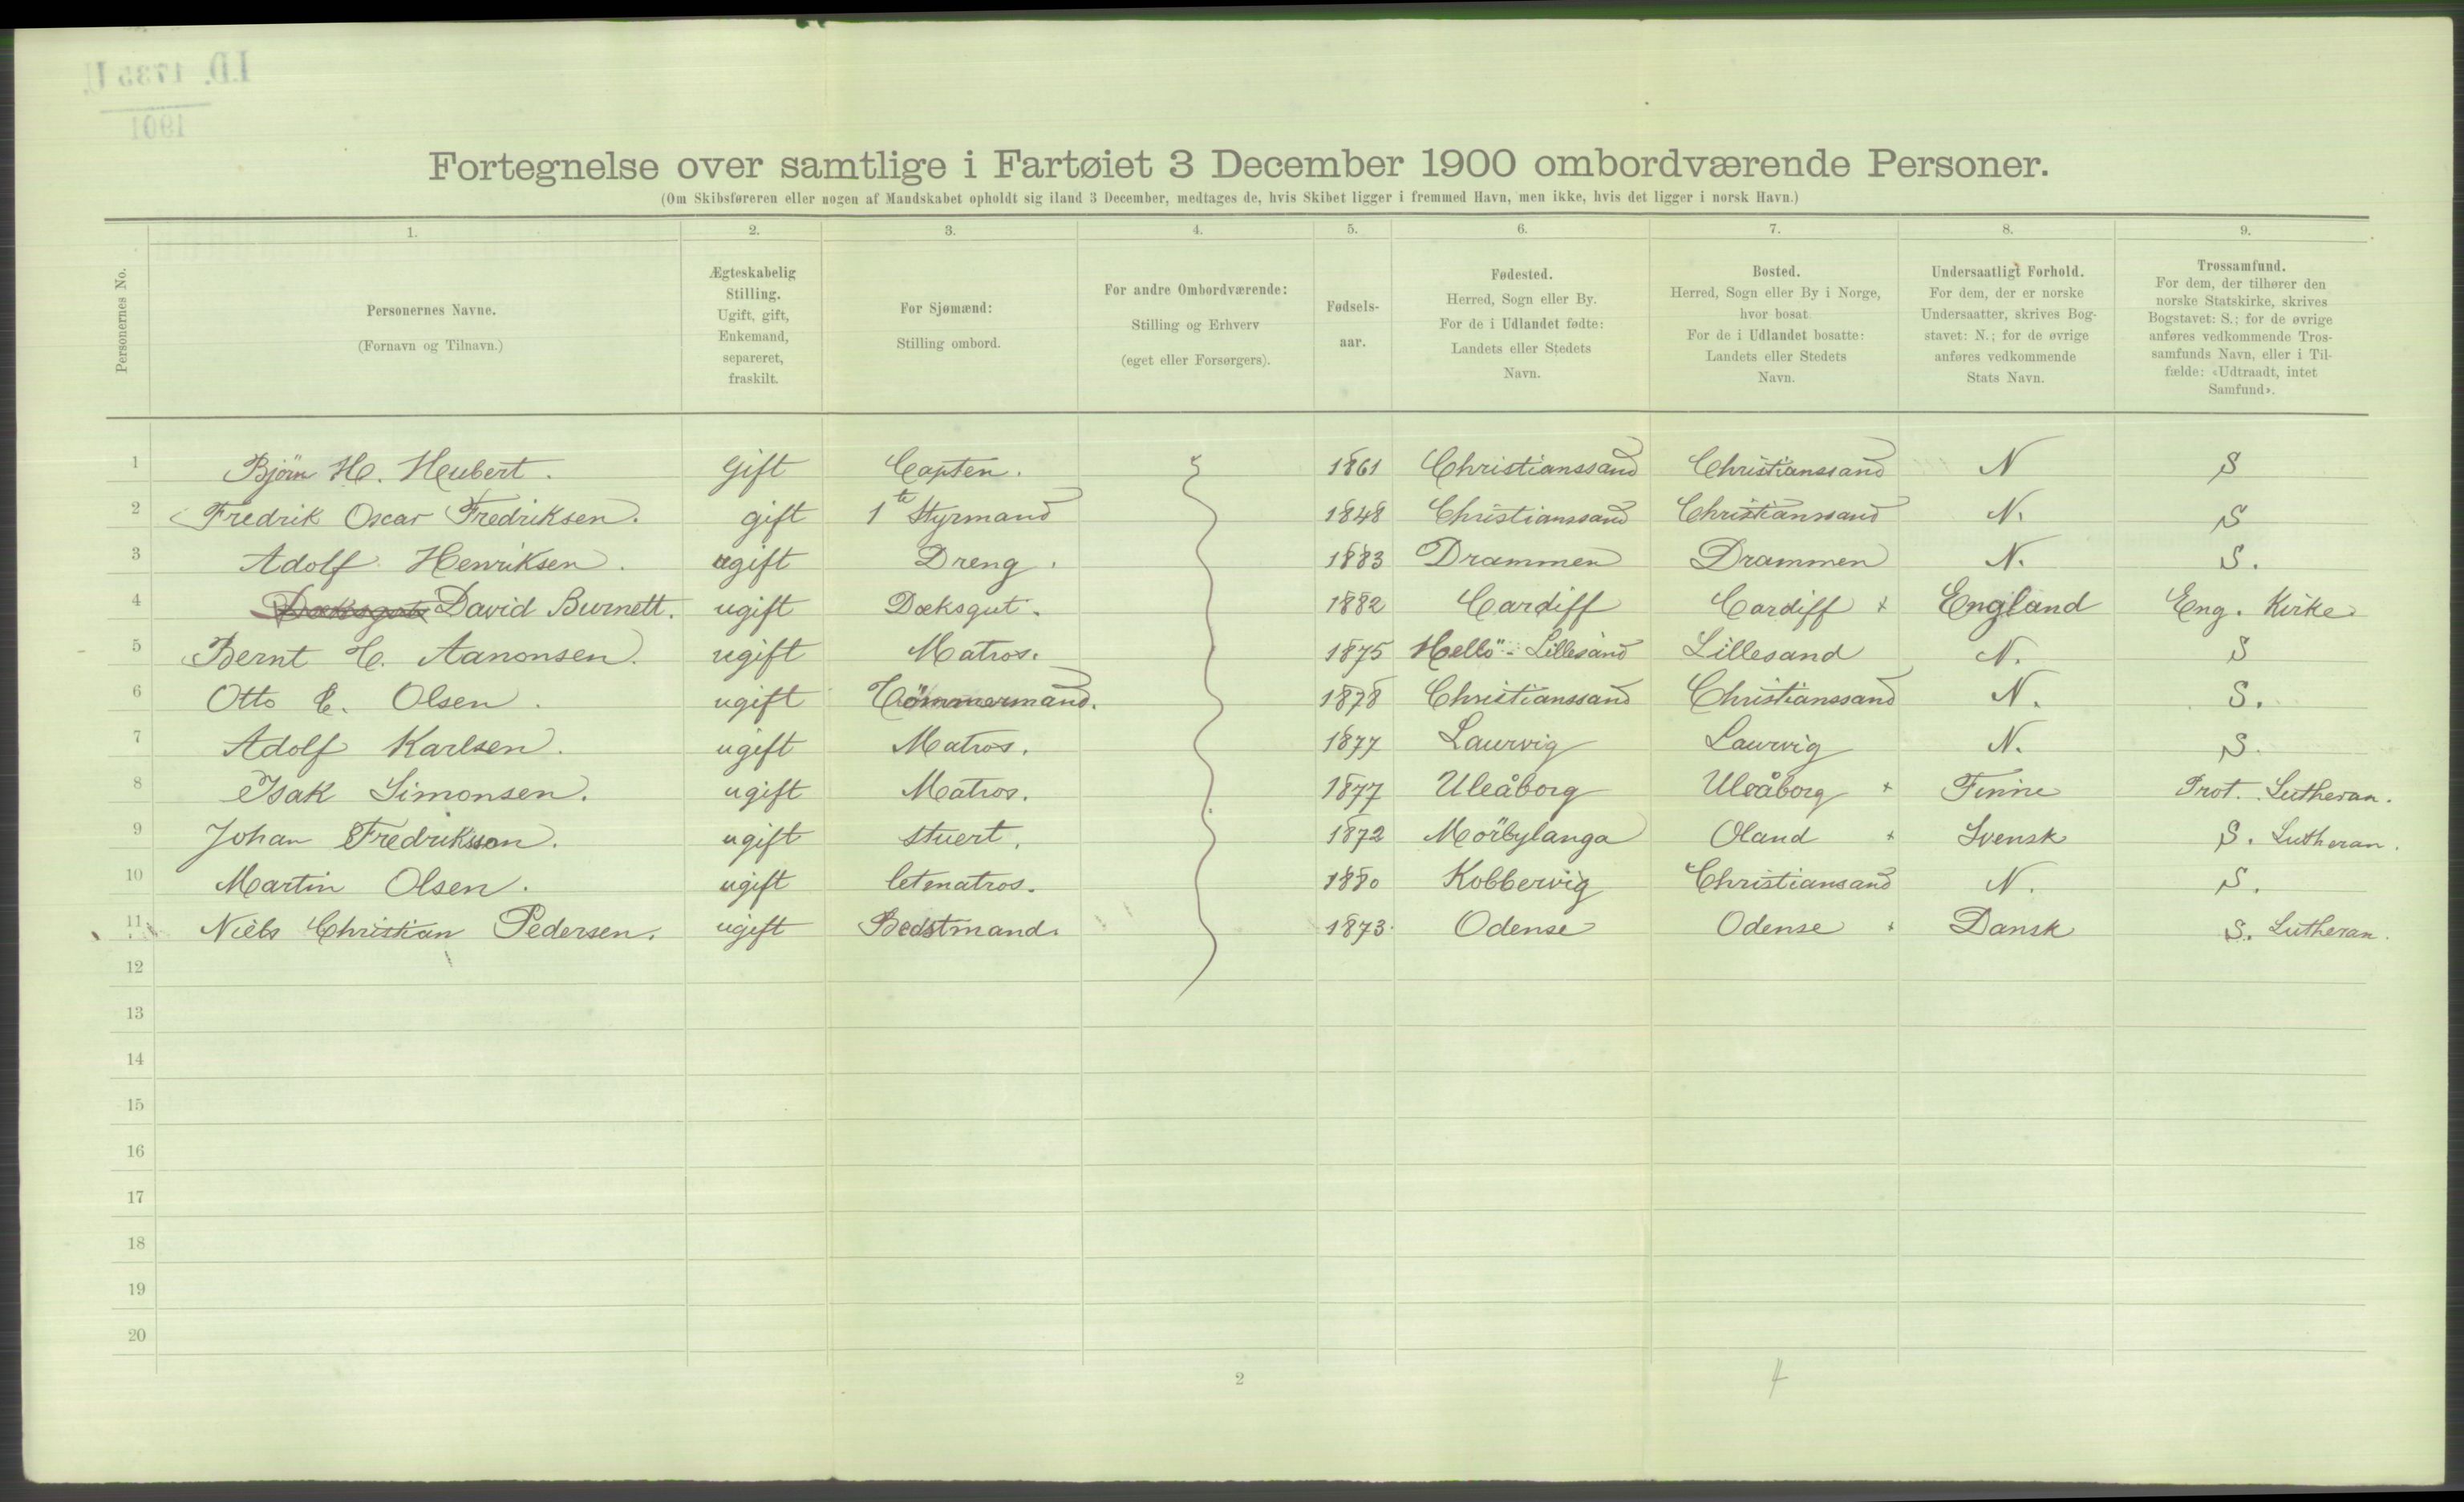 I.D. 1735 U.
1901
Fortegnelse over samtlige i Fartøiet 3 December 1900 ombordværende Personer.
(Om Skibsføreren eller nogen af Mandskabet opholdt sig iland 3 December, medtages de, hvis Skibet ligger i fremmed Havn, men ikke, hvis det ligger i norsk Havn.)
1. 2. 3. 4. 5. 6. 7. 8. 9.
Personernes No.
Personernes Navne.
(Fornavn og Tilnavn.)
Ægteskabelig
Stilling.
Ugift, gift,
Enkemand,
separeret,
fraskilt.
For Sjømænd:
Stilling ombord.
For andre Ombordværende:
Stilling og Erhverv
(eget eller Forsørgers).
Fødsels-
aar.
Fødested.
Herred, Sogn eller By.
For de i Udlandet fødte:
Landets eller Stedets
Navn.
Bosted.
Herred, Sogn eller By i Norge,
hvor bosat
For de i Udlandet bosatte:
Landets eller Stedets
Navn.
Undersaatligt Forhold.
For dem, der er norske
Undersaatter, skrives Bog-
stavet: N.; for de øvrige
anføres vedkommende
Stats Navn.
Trossamfund.
For dem, der tilhører den
norske Statskirke, skrives
Bogstavet: S.; for de øvrige
anføres vedkommende Tros-
samfunds Navn, eller i Til-
fælde: «Udtraadt, intet
Samfund».
1 Björn H. Heubert. Gift Capten. 1861 Christianssand Christianssand N S
2 Fredrik Oscar Fredriksen. gift 1te Styrmand 1848 Christianssand Christianssand N. S
3 Adolf Henriksen. ugift Dreng. 1883 Drammen Drammen N. S.
4 David Burnett. ugift Dæksgut. 1882 Cardiff Cardiff + England Eng. Kirke
5 Bernt C. Aanonsen. ugift Matros. 1875 Hellö - Lillesand Lillesand N. S
6 Otto E. Olsen. ugift Tömmermand. 1878 Christianssand Christianssand N. S.
7 Adolf Karlsen. ugift Matros. 1877 Laurvig Laurvig N. S.
8 Isak Simonsen. ugift Matros. 1877 Uleåborg Uleåborg + Finne Prot. Lutheran.
9 Johan Fredriksson. ugift Stuert. 1872 Mörbylanga Oland + Svensk S. Lutheran.
10 Martin Olsen. ugift letmatros. 1880 Kobbervig Christiansand N. S.
11 Niels Christian Pedersen. ugift Bedstmand. 1873. Odense Odense + Dansk S. Lutheran.
12
13
14
15
16
17
18
19
20
2
4